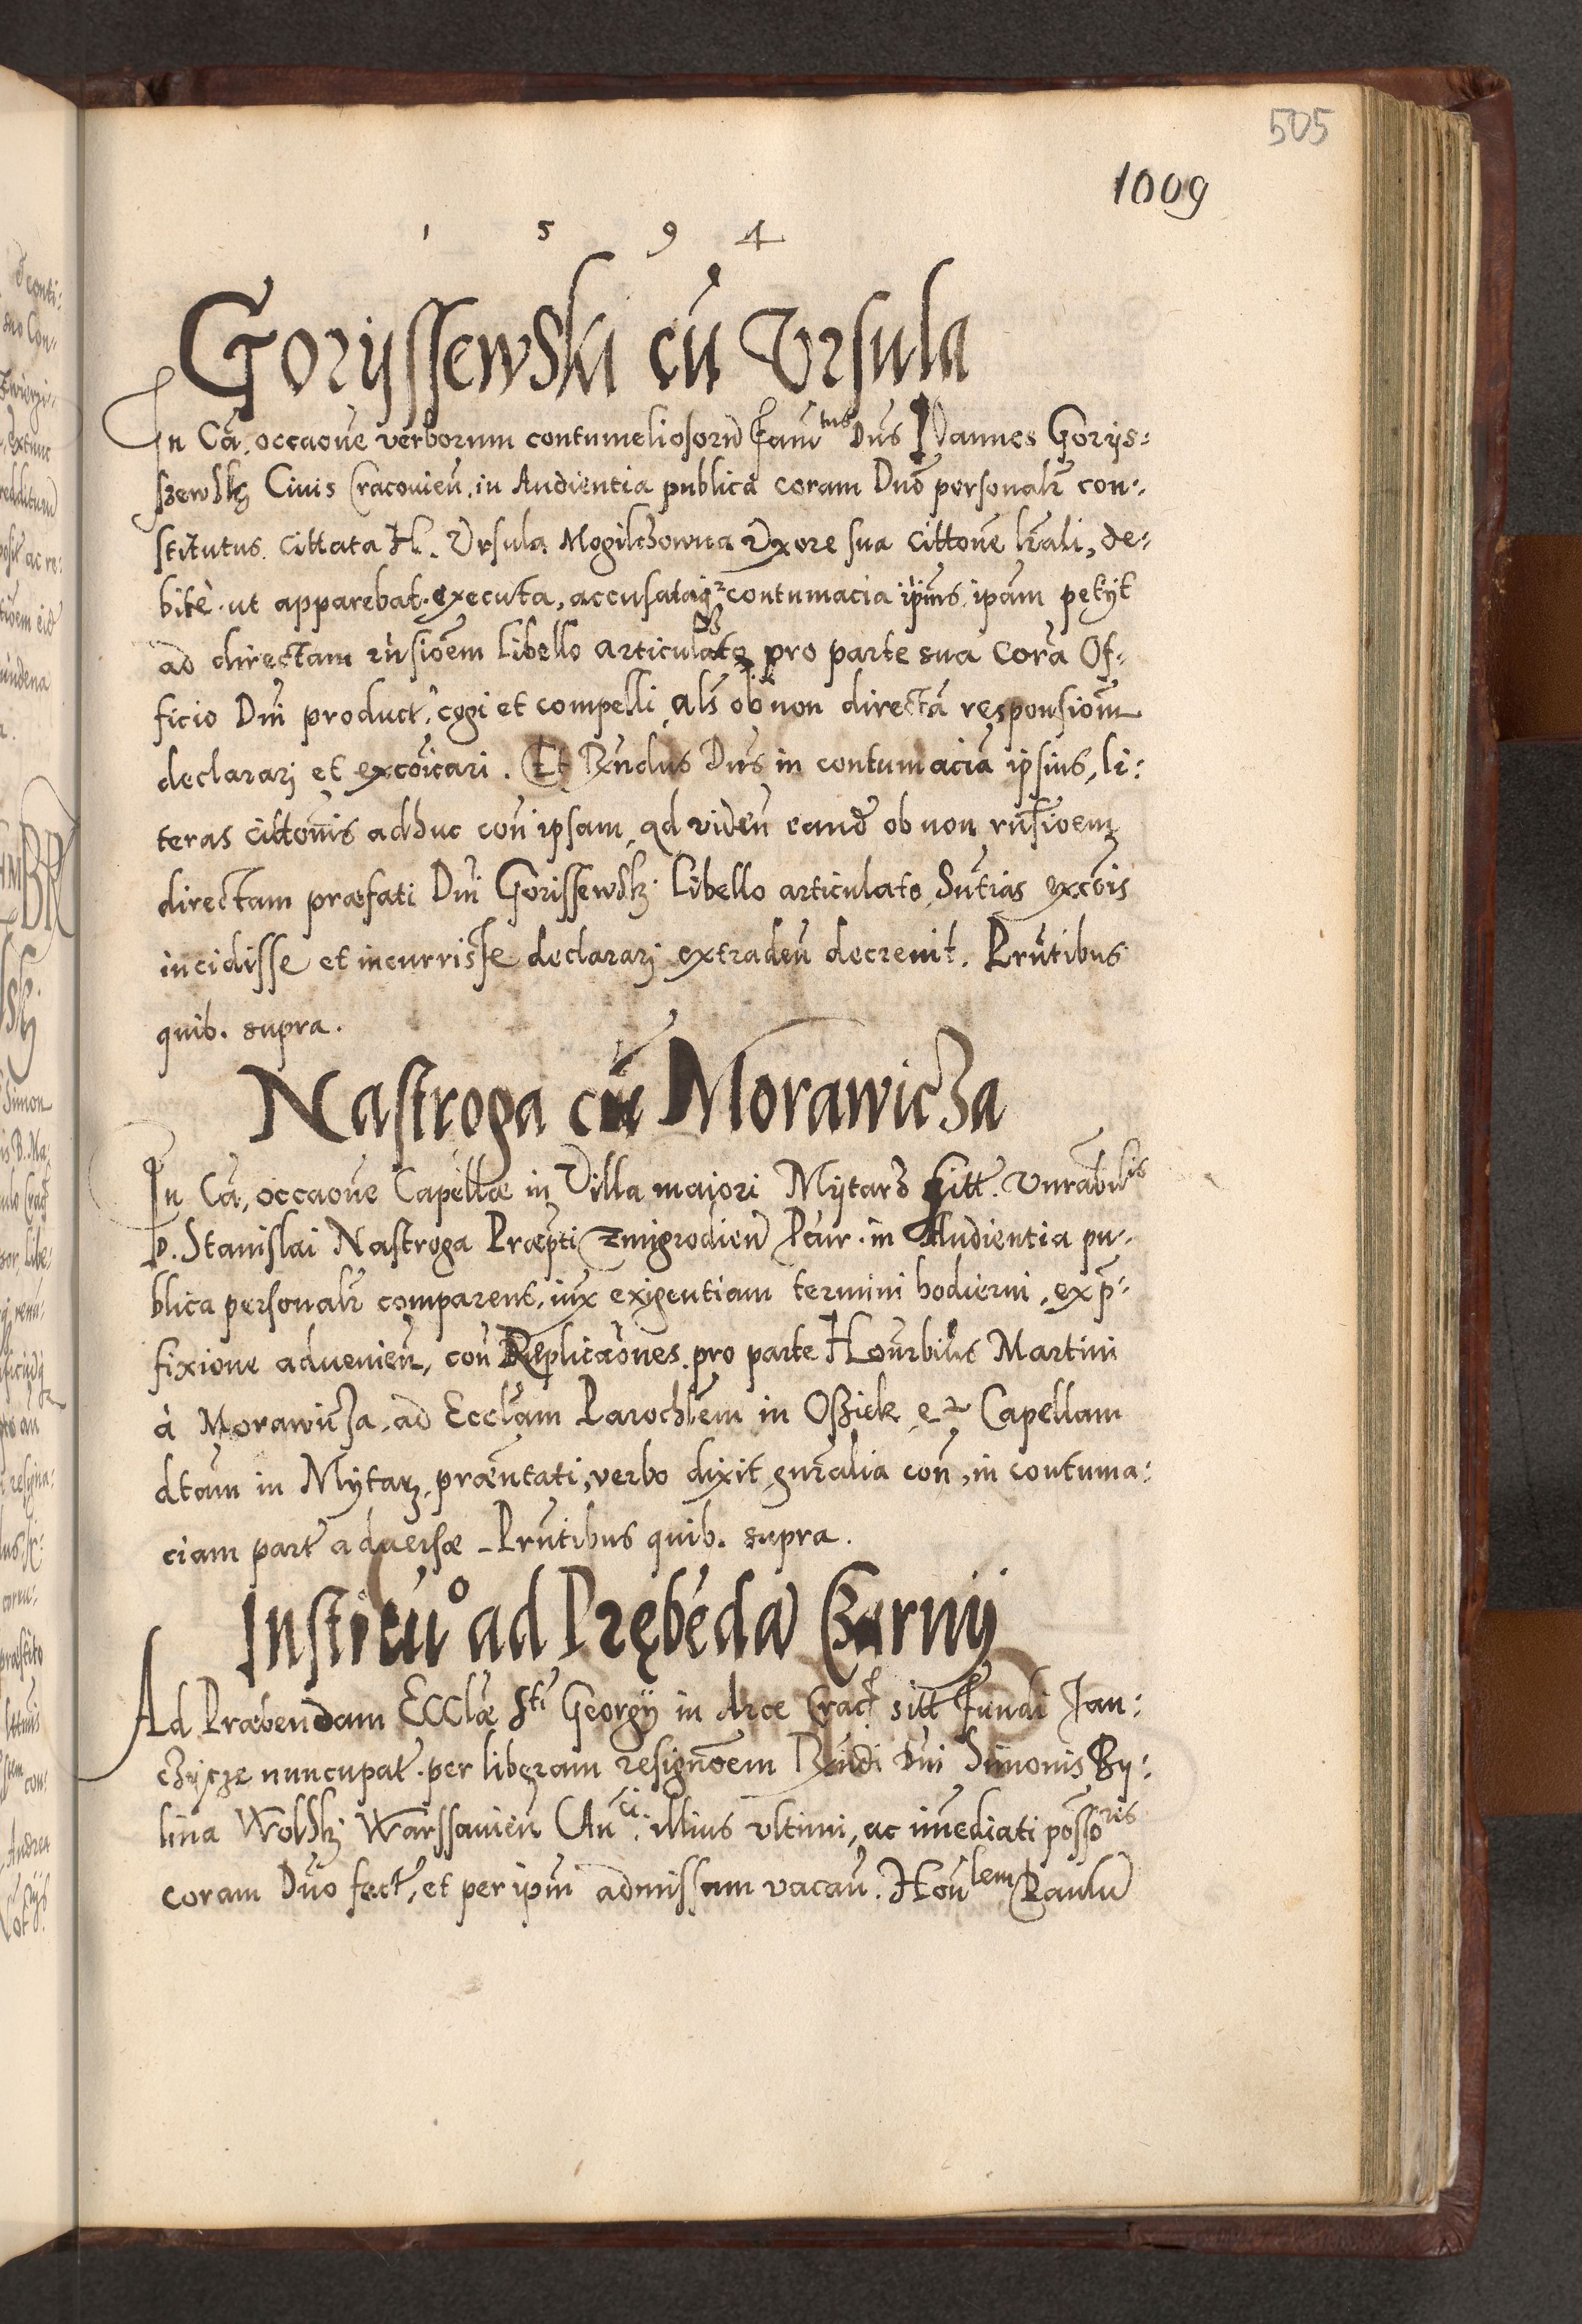 505
1009
1 5 9 4
Goryssewski cū Vrsula
In Cā, occaōne verborum contumeliosorū Famtus Dn̄s Joannes Gorys:
szewsky Civis Cracovien̄. in Audientia publica coram Dnō personalr̄ con:
stitutus. cittata H. Vrsula Mogilchowna Vxore sua cittōne lr̄ali, de:
bitè. ut apparebat. executa, accusataq₃ contumacia ip̄ius. ip̄am petyt
ad directam rn̄siōem libello articulato pro parte sua Corā Of:
ficio Dn̄i product̄, cogi et compelli, al̄s ob non directā responsiōm
declararj et excōicari. Et Rn̄dus Dn̄s in contumaciā ipsius, li:
teras cittōnis adhuc con̄ ipsam, ad viden̄ eand̄ ob non rn̄siōem
directam præfati Dn̄i Gorissewsky Libello articulato, Sn̄tias excōis
incidisse et incurrisse declararj extraden̄ decrevit. Prn̄tibus
quib. supra.
Nastroga cū Morawicza
In Cā, occaōne Capellæ in Villa majori Mytarz sitt̄. Vnrabilis
D. Stanislai Nastroga Præpti Zmigrodien̄ Pcur̄. in Audientia pu:
blica personalr̄ comparent, iux̄ exigentiam termini hodierni, ex p̄:
fixione advenien̄, con̄ Replicaōnes. pro parte Honr̄bilis Martini
à Morawicza, ad Eccl̄am Parochl̄em in Osziek, et Capellam
dtam in Mytarz, præn̄tati, verbo dixit gn̄ralia con̄, in contuma:
ciam part̄ adversæ _ Prn̄tibus quib. supra.
Institūo ad Prębēdā Czarny
Ad Præbendam Ecclæ Sti Georgÿ in Arce Crac̄ sitt̄ Fundi Jan:
czycze nuncupat̄. per liberam resignōem Rn̄di Dn̄i Simonis By:
lina Wolsky Warssavien̄ Cān̄ci. illius vltimi, ac im̄ediati possoris
coram Dn̄o fact̄, et per ip̄m admissam vacan̄. Hon̄lem Paulū